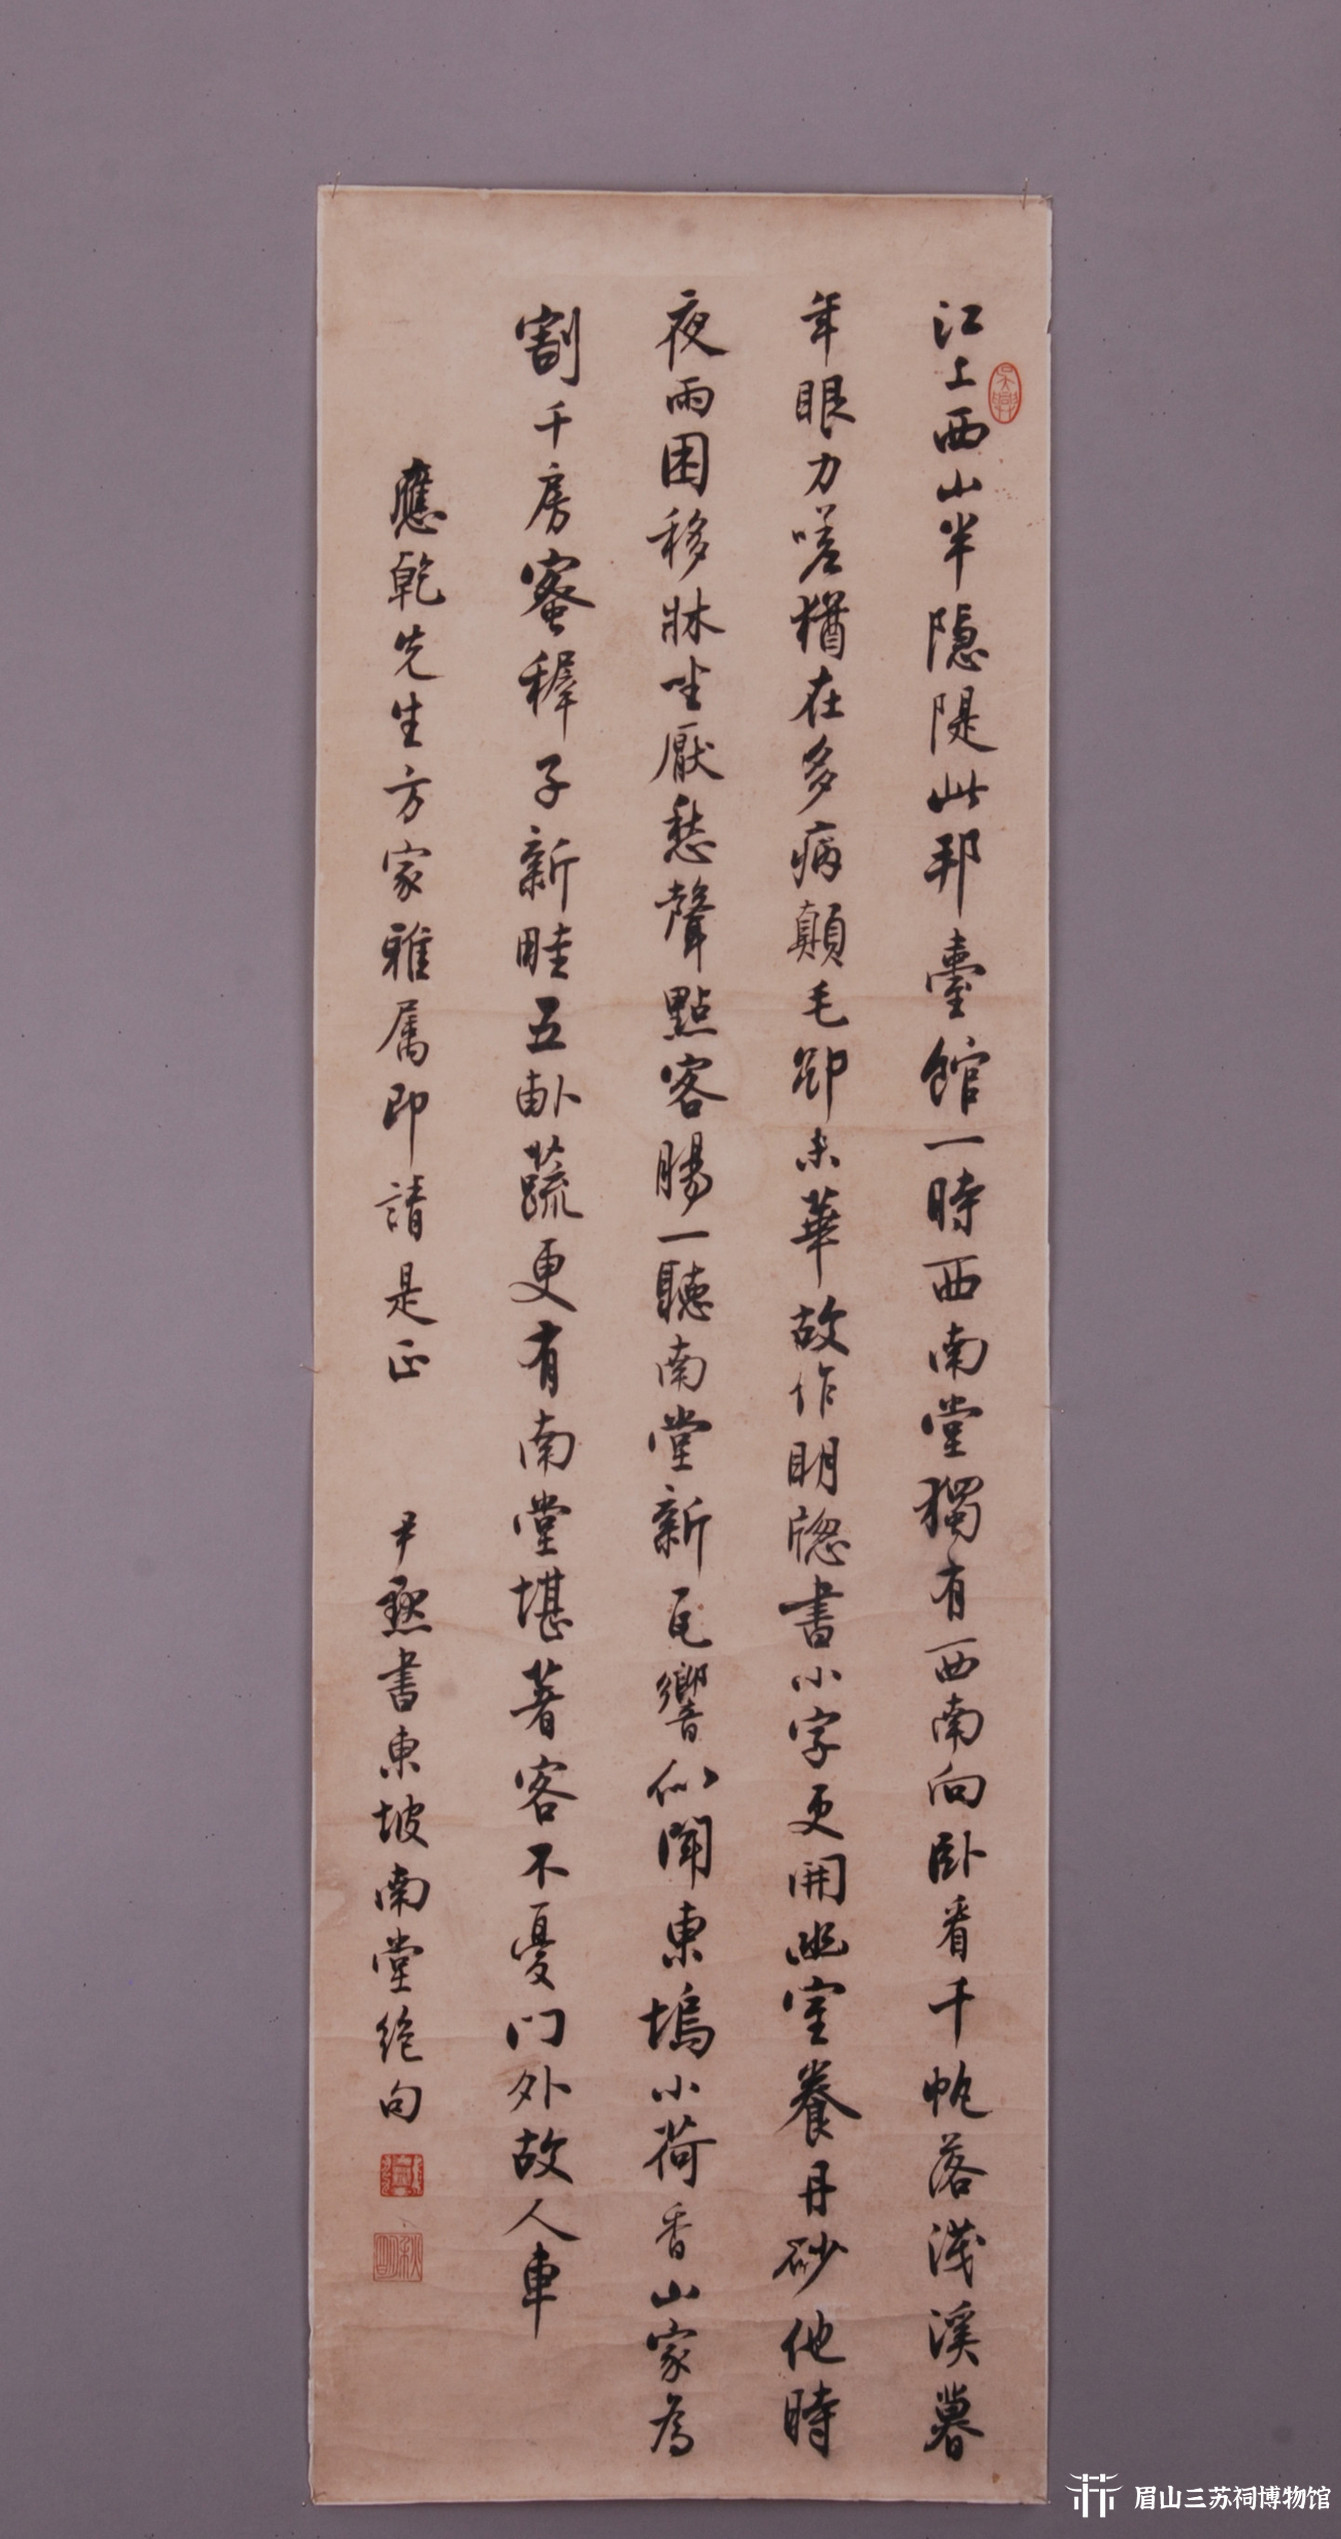 江上西山半隱隄此邦臺館一時西南堂獨有西南向臥看千帆落淺溪暮
年眼力嗟猶在多病顛毛卻未華故作明牕書小字更開幽室養丹砂他時
夜雨困移牀坐厭愁聲點客腸一聽南堂新瓦響似聞東塢小荷香山家為
割千房蜜稺子新畦五畝蔬更有南堂堪著客不憂門外故人車
應乾先生方家雅屬即請是正
尹默書東坡南堂絕句
吳興
眉山三苏祠博物馆